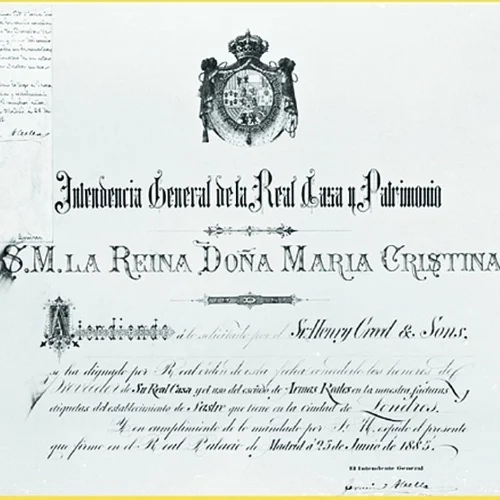 Intendencia General de la Real Casa y Patrimonio
S.M. LA REINA DOÑA MARIA CRISTINA
Atendiendo á lo solicitado por el Sr. Henry Creed & Sons,
se ha dignado por Real orden de esta fecha concederle los honores de
Proveedor de Su Real Casa y el uso del escudo de Armas Reales en la muestra facturas y
etiquetas del establecimiento de Sastre que tiene en la ciudad de Londres.
Y en cumplimiento de lo mandado por S. M. expido el presente
que firmo en el Real Palacio de Madrid á 25 de Junio de 1885.
El Intendente General